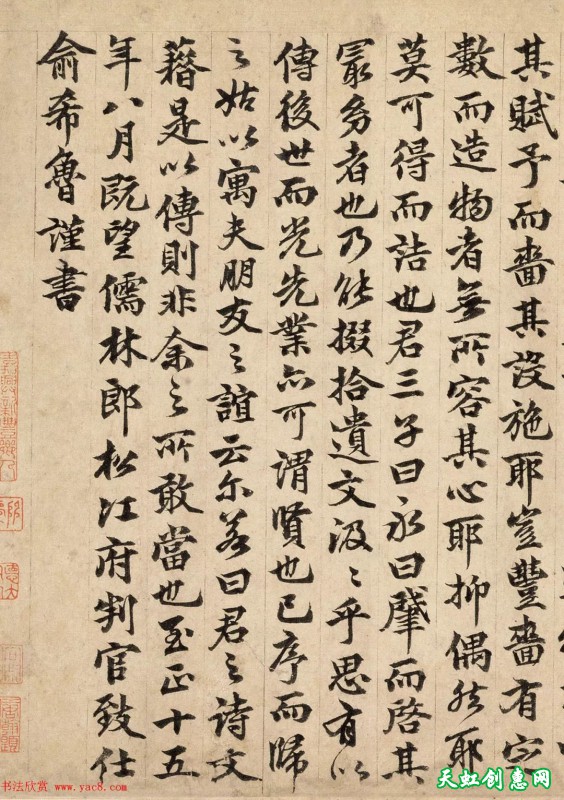 其賦予而嗇其設施耶豈豐嗇有定
數而造物者無所容其心耶抑偶然耶
莫可得而詰也君三子曰永曰肇而啓其
冣㓜者也乃能掇拾遺文汲〻乎思有以
傳後世而光先業亦可謂賢也已序而歸
之姑以寓夫朋友之誼云尔若曰君之詩文
藉是以傳則非余之所敢當也至正十五
年八月既望儒林郎松江府判官致仕
俞希魯謹書
书法欣赏 www.yac8.com
天虹创惠网